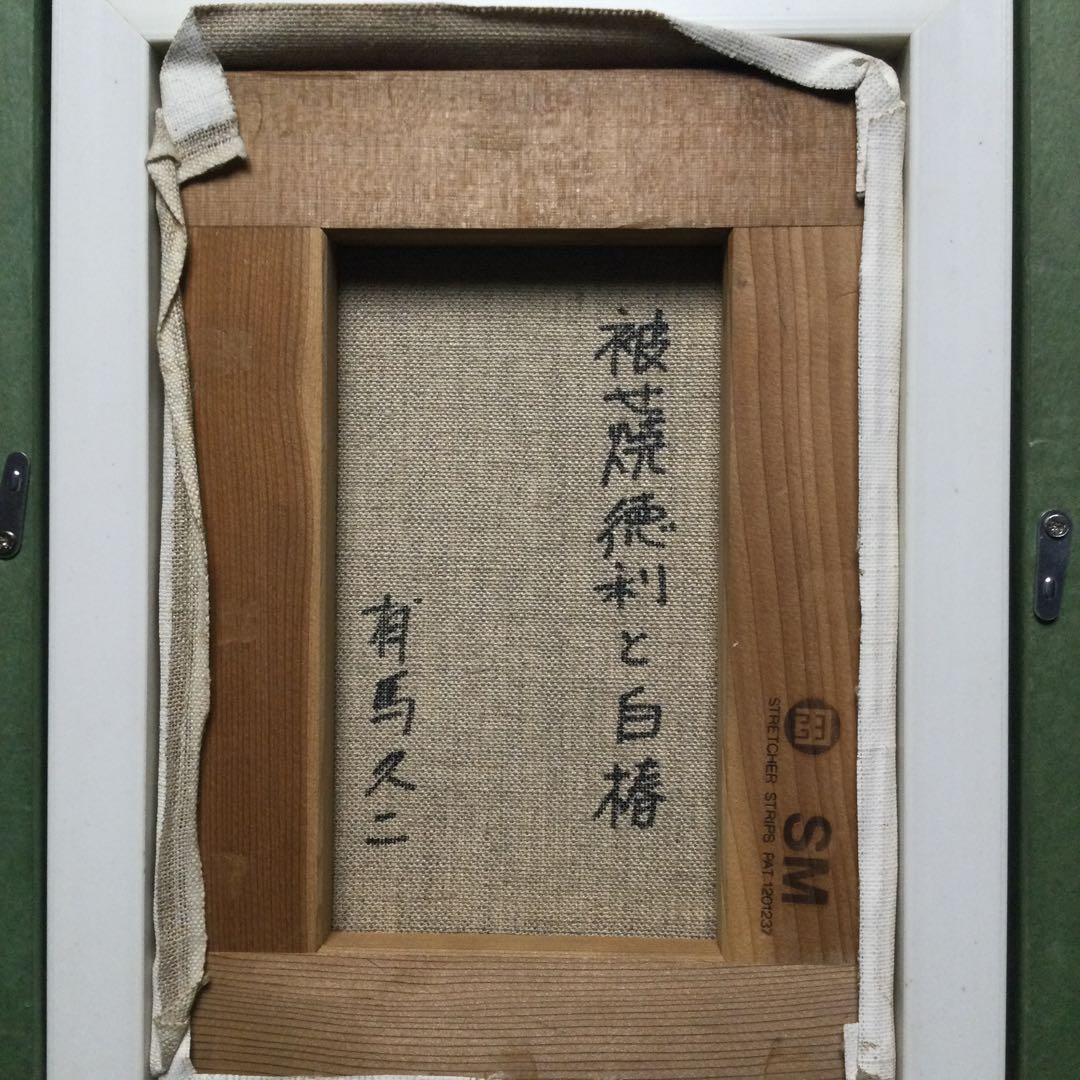 被せ焼徳利と白椿
有馬久二
SM
STRETCHER STRIPS PAT.1201237